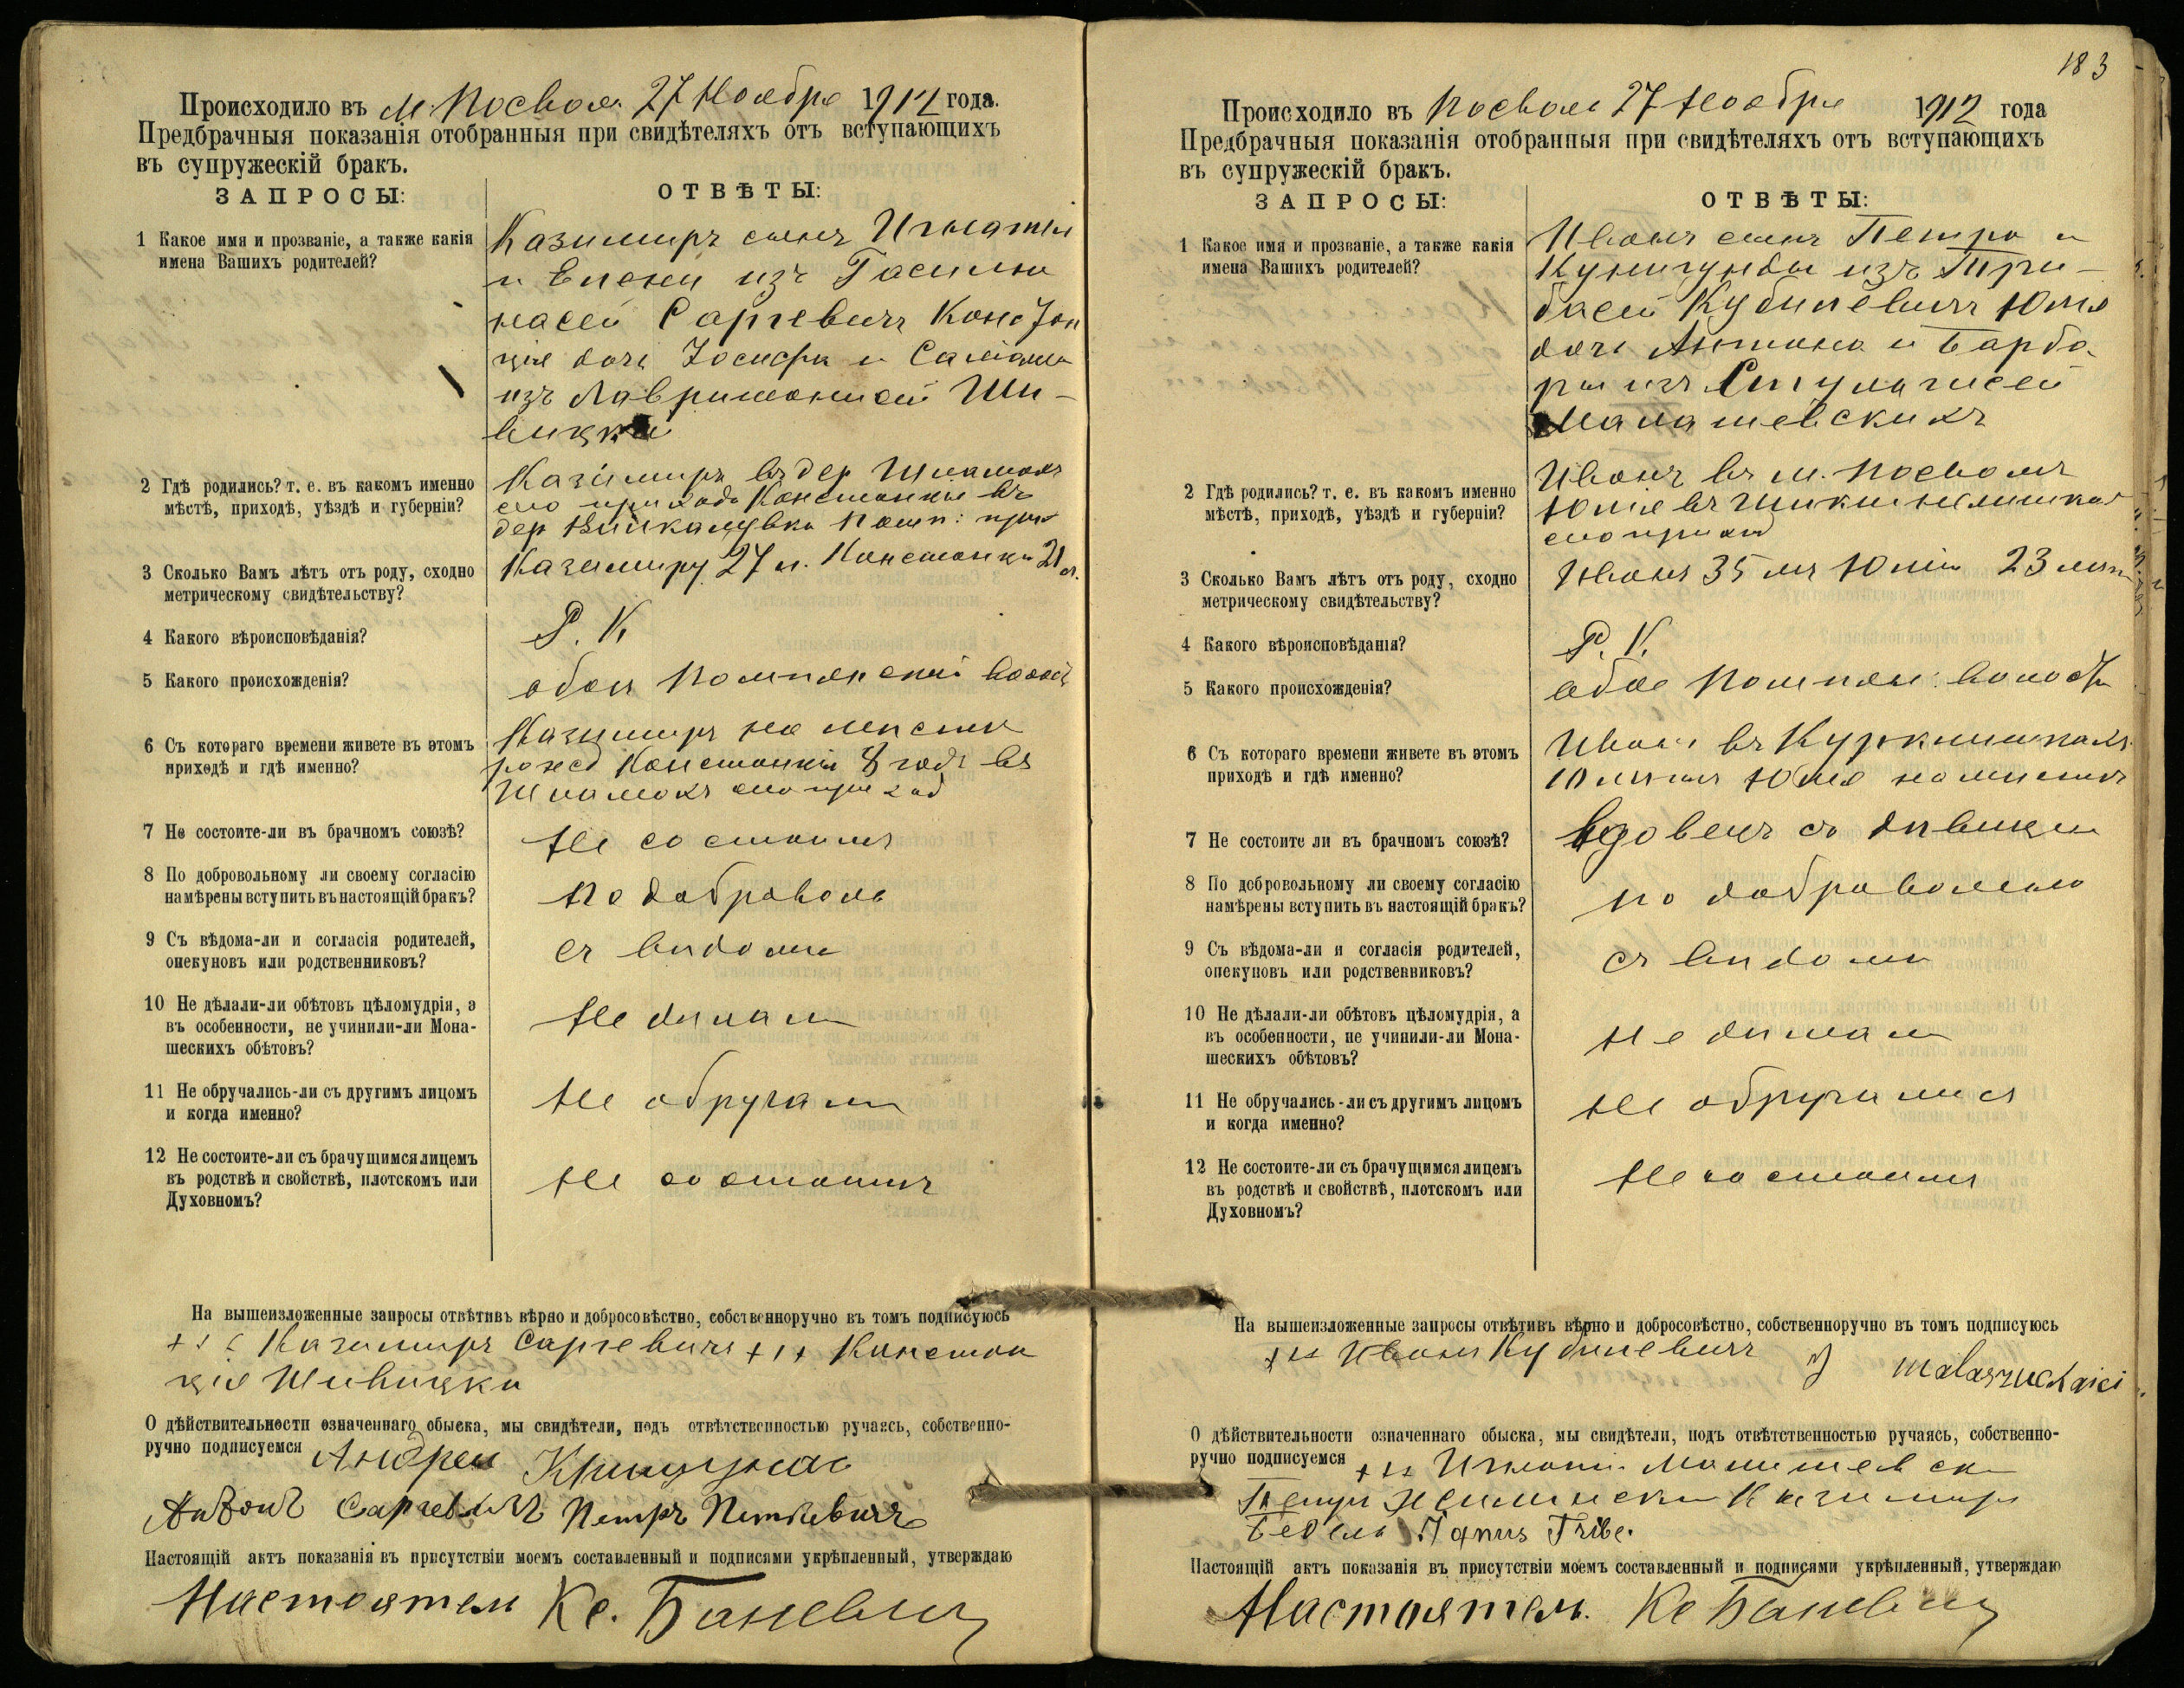 Происходило въ м. Посволѣ 27 Ноября 1912 года.
Предбрачныя показанія отобранныя при свидѣтеляхъ отъ вступающихъ
въ супружескій бракъ.
ЗАПРОСЫ: ОТВѢТЫ:
1 Какое имя и прозваніе, а также какія
имена Вашихъ родителей?
Казимиръ сынъ Игнатія
и Елены изъ
Саргевичъ Констан
ція дочь Іосифа и
изъ Ши-
вицки
2 Гдѣ родились? т. е. въ какомъ именно
мѣстѣ, приходѣ, уѣздѣ и губерніи?
Казимиръ въ дер
сего прихода Констанція въ
дер
3 Сколько Вамъ лѣтъ отъ роду, сходно
метрическому свидѣтельству?
Казимиру 27 л. Констанціи 21 л.
4 Какого вѣроисповѣданія?
Р. К
5 Какого происхожденія?
обои
6 Съ котораго времени живете въ этомъ
приходѣ и гдѣ именно?
Казимиръ на мѣстѣ
рожд Констанція 8 годъ въ
7 Не состоите-ли въ брачномъ союзѣ?
Не состоимъ
8 По добровольному ли своему согласію
намѣрены вступить въ настоящій бракъ?
По доброволь
9 Съ вѣдома-ли и согласія родителей,
опекуновъ или родственниковъ?
съ вѣдома
10 Не дѣлали-ли обѣтовъ цѣломудрія, а
въ особенности, не учинили-ли Мона-
шескихъ обѣтовъ?
Не дѣлали
11 Не обручались-ли съ другимъ лицомъ
и когда именно?
Не обручали
12 Не состоите-ли съ брачущимся лицемъ
въ родствѣ и свойствѣ, плотскомъ или
Духовномъ?
Не состоимъ
На вышеизложенные запросы отвѣтивъ вѣрно и добросовѣстно, собственноручно въ томъ подписуюсь
+++ Казимиръ Саргевичъ +++ Констан
ція Шивицки
О дѣйствительности означеннаго обыска, мы свидѣтели, подъ отвѣтственностью ручаясь, собственно-
ручно подписуемся Андрей
Антонъ Саргевичъ Петръ Петкевичъ
Настоящій актъ показанія въ присутствіи моемъ составленный и подписями укрѣпленный, утверждаю
Настоятель Кс. Баневичъ
183
Происходило въ Посволѣ 27 Ноября 1912 года
Предбрачныя показанія отобранныя при свидѣтеляхъ отъ вступающихъ
въ супружескій бракъ.
ЗАПРОСЫ: ОТВѢТЫ:
1 Какое имя и прозваніе, а также какія
имена Вашихъ родителей?
Иванъ сынъ Петра и
Кунигунды изъ Три-
басей Кубилевичъ Юлія
дочь Антона и Барба
ры изъ
Малашевскихъ
2 Гдѣ родились? т. е. въ какомъ именно
мѣстѣ, приходѣ, уѣздѣ и губерніи?
Иванъ въ м. Посволѣ
Юлія въ
сего приход
3 Сколько Вамъ лѣтъ отъ роду, сходно
метрическому свидѣтельству?
Иванъ 35 лѣтъ Юлія 23 лѣтъ
4 Какого вѣроисповѣданія?
Р. К.
5 Какого происхожденія?
обое волости
6 Съ котораго времени живете въ этомъ
приходѣ и гдѣ именно?
Иванъ въ
10 лѣтъ Юлія на мѣстѣ
7 Не состоите ли въ брачномъ союзѣ?
вдовецъ съ дѣвицею
8 По добровольному ли своему согласію
намѣрены вступить въ настоящій бракъ?
по добровольно
9 Съ вѣдома-ли и согласія родителей,
опекуновъ или родственниковъ?
съ вѣдома
10 Не дѣлали-ли обѣтовъ цѣломудрія, а
въ особенности, не учинили-ли Мона-
шескихъ обѣтовъ?
Не дѣлали
11 Не обручались-ли съ другимъ лицомъ
и когда именно?
Не обручался
12 Не состоите-ли съ брачущимся лицемъ
въ родствѣ и свойствѣ, плотскомъ или
Духовномъ?
Не состоимъ
На вышеизложенные запросы отвѣтивъ вѣрно и добросовѣстно, собственноручно въ томъ подписуюсь
+++ Иванъ Кубилевичъ
О дѣйствительности означеннаго обыска, мы свидѣтели, подъ отвѣтственностью ручаясь, собственно-
ручно подписуемся +++ Игнатій
Петръ Казимиръ
Бедель
Настоящій актъ показанія въ присутствіи моемъ составленный и подписями укрѣпленный, утверждаю
Настоятель. Кс Баневичъ